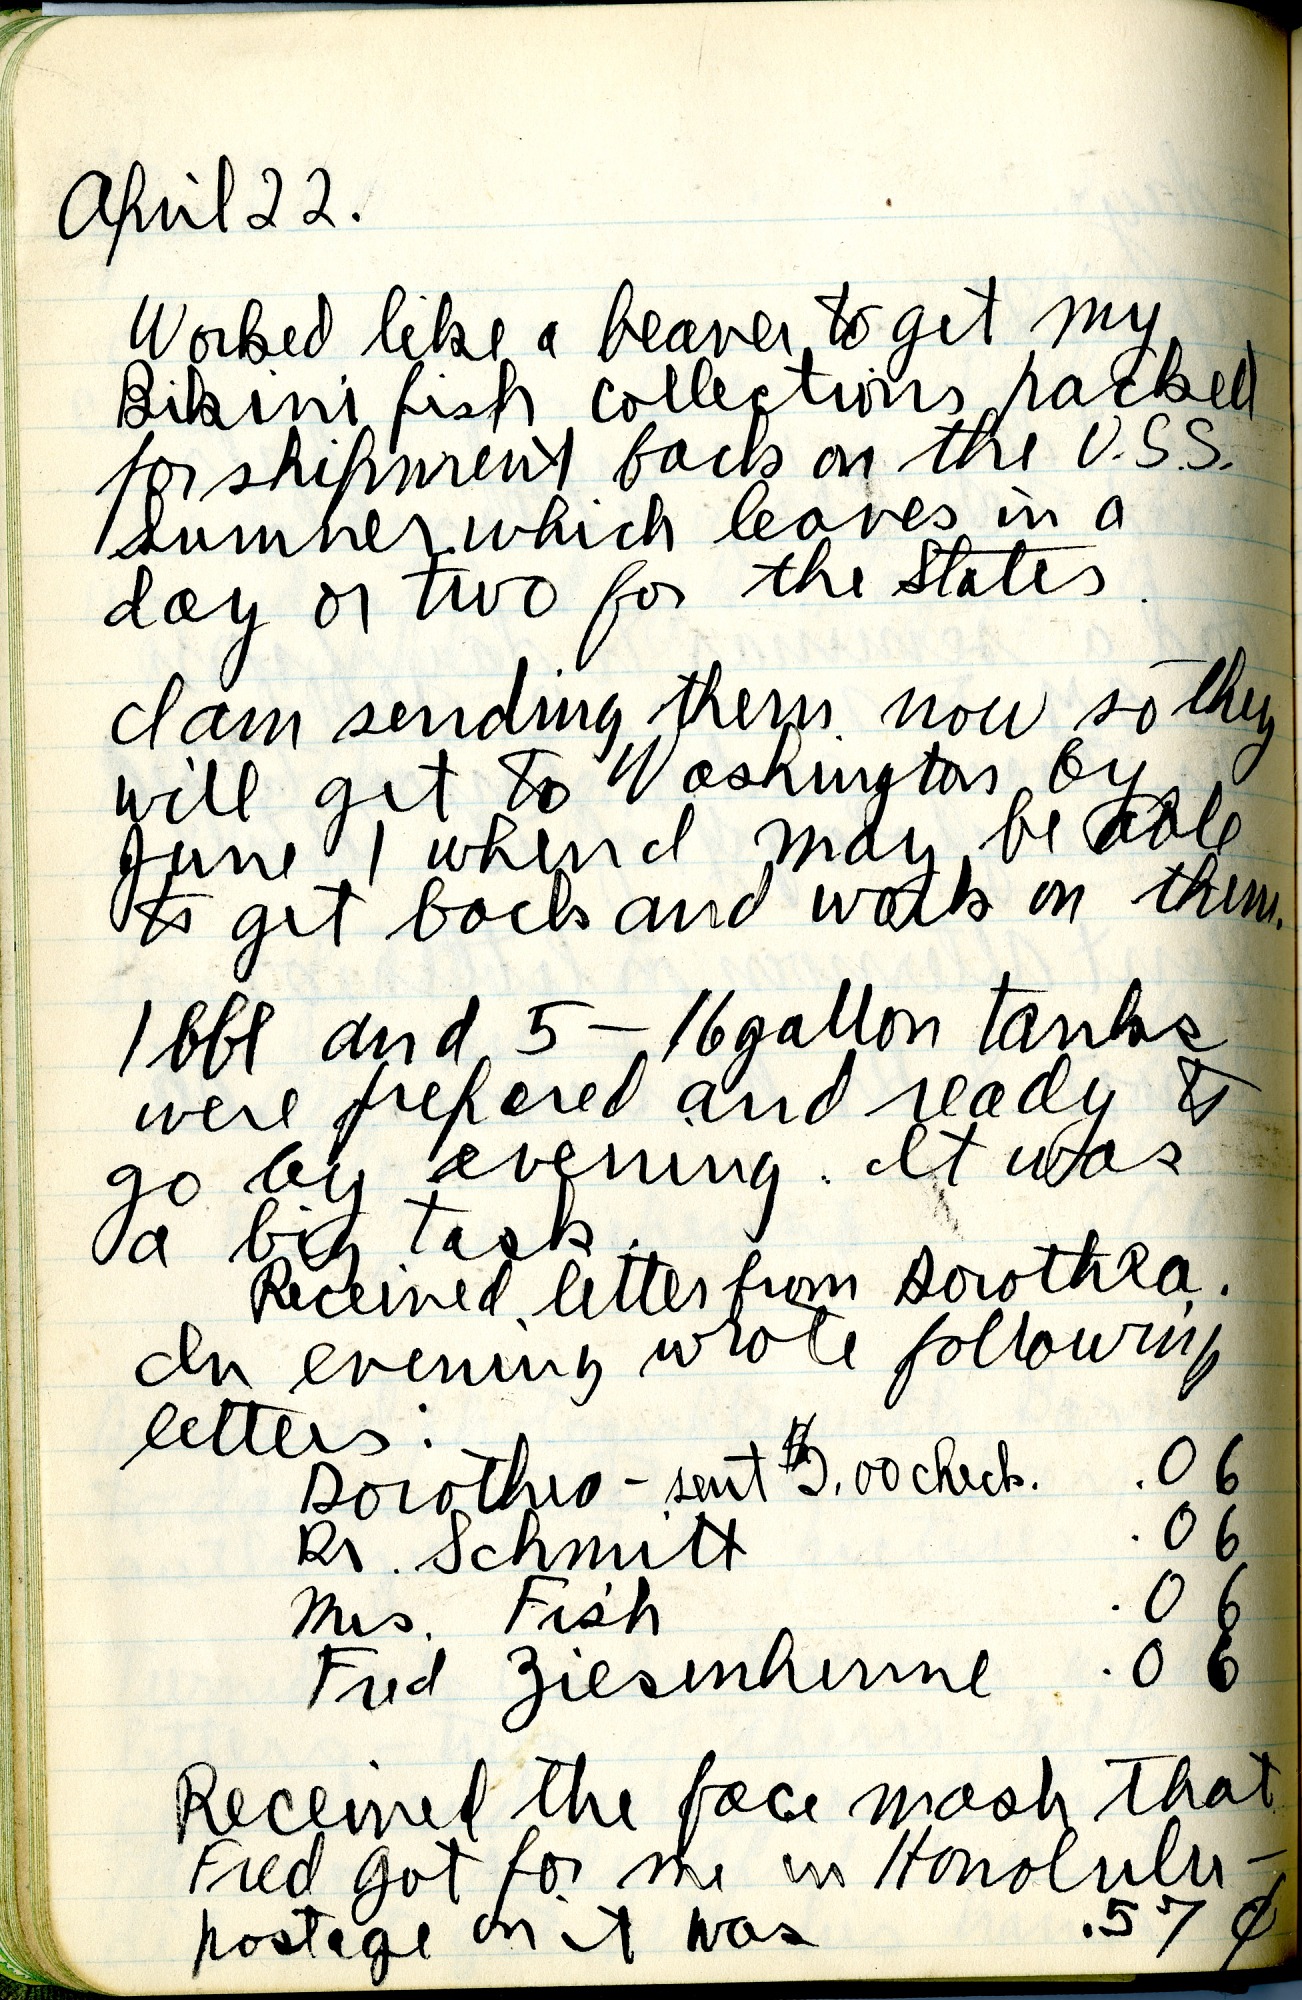 April 22.
Worked like a beaver to get my
Bikini fish collections packed
for shipment back on the U.S.S.
Sumner which leaves in a
day or two for the States.
I am sending them now so they
will get to Washington by
June 1 when I may be able
to get back and work on them.
1 bbl and 5 – 16 gallon tanks
were prepared and ready to
go by evening. It was
a big task.
Received letter from Dorothea.
In evening wrote following
letters:
Dorothea – sent $5.00 check. .06
Dr. Schmitt .06
Mrs. Fish .06
Fred Ziesenhenne .06
Received the face mask that
Fred got for me in Honolulu –
postage on it was .57 ¢